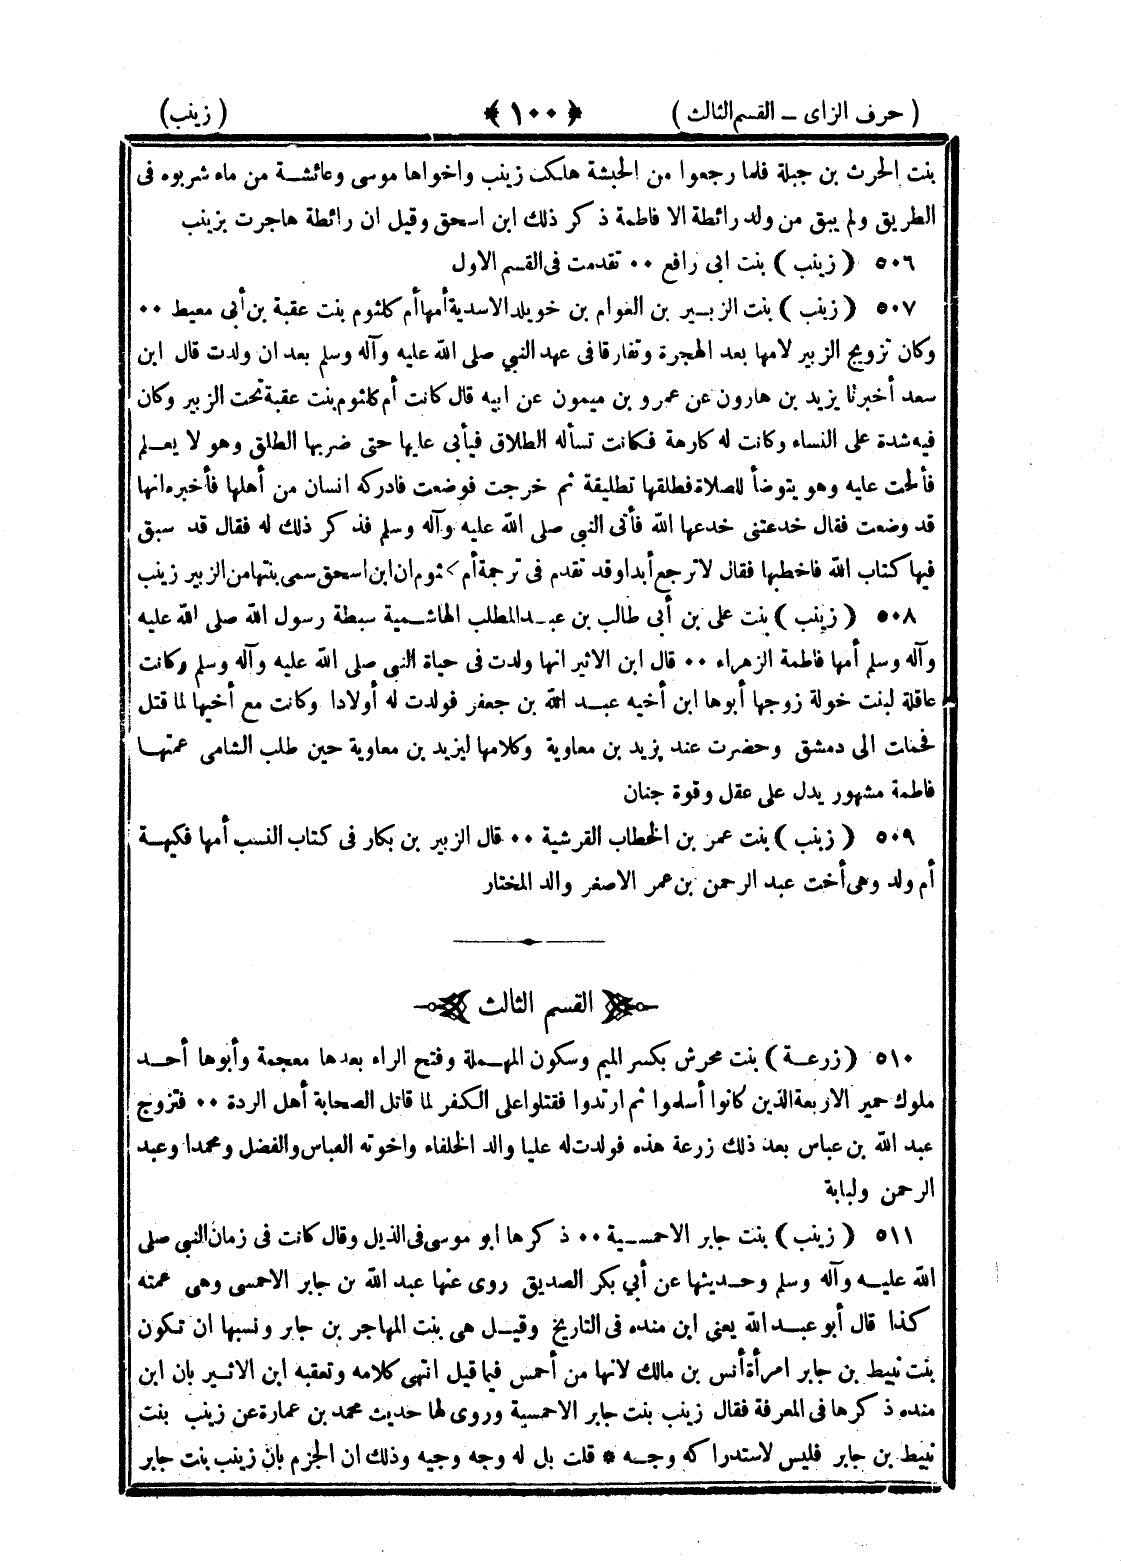 ( حرف الزاى – القسم الثالث ) ﴿ ١٠٠ ﴾ ( زينب )
بنت الحرث بن جبلة فلما رجعوا من الحبشة هلكت زينب واخواها موسى وعائشة من ماء شربوه فى
الطريق ولم يبق من ولد رائطة الا فاطمة ذكر ذلك ابن اسحق وقيل ان رائطة هاجرت بزينب
٥٠٦ ( زينب ) بنت ابى رافع ٠٠ تقدمت فى القسم الاول
٥٠٧ ( زينب ) بنت الزبير بن العوام بن خويلد الاسدية أمها أم كلثوم بنت عقبة بن أبى معيط ٠٠
وكان تزويج الزبير لامها بعد الهجرة وتفارقا فى عهد النبي صلى الله عليه وآله وسلم بعد ان ولدت قال ابن
سعد أخبرنا يزيد بن هارون عن عمرو بن ميمون عن ابيه قال كانت أم كلثوم بنت عقبة تحت الزبير وكان
فيه شدة على النساء وكانت له كارهة فكانت تسأله الطلاق فيأبى عليها حتى ضربها الطلق وهو لا يعلم
فألحت عليه وهو يتوضأ للصلاة فطلقها تطليقة ثم خرجت فوضعت فادركه انسان من أهلها فأخبره انها
قد وضعت فقال خدعتنى خدعها الله فأتى النبي صلى الله عليه وآله وسلم فذكر ذلك له فقال قد سبق
فيها كتاب الله فاخطبها فقال لا ترجع أبدا وقد تقدم فى ترجمة أم كلثوم ان ابن اسحق سمى بنتها من الزبير زينب
٥٠٨ ( زينب ) بنت على بن أبى طالب بن عبد المطلب الهاشمية سبطة رسول الله صلى الله عليه
وآله وسلم أمها فاطمة الزهراء ٠٠ قال ابن الاثير انها ولدت فى حياة النبى صلى الله عليه وآله وسلم وكانت
عاقلة لبنت خولة زوجها أبوها ابن أخيه عبد الله بن جعفر فولدت له أولادا وكانت مع أخيها لما قتل
فحملت الى دمشق وحضرت عند يزيد بن معاوية وكلامها ليزيد بن معاوية حين طلب الشامى عمتها
فاطمة مشهور يدل على عقل وقوة جنان
٥٠٩ ( زينب ) بنت عمر بن الخطاب القرشية ٠٠ قال الزبير بن بكار فى كتاب النسب أمها فكيهة
أم ولد وهى أخت عبد الرحمن بن عمر الاصغر والد المختار
القسم الثالث
٥١٠ ( زرعة ) بنت محرش بكسر الميم وسكون المهملة وفتح الراء بعدها معجمة وأبوها أحد
ملوك حمير الاربعة الذين كانوا أسلموا ثم ارتدوا فقتلوا على الكفر لما قاتل الصحابة أهل الردة ٠٠ فتزوج
عبد الله بن عباس بعد ذلك زرعة هذه فولدت له عليا والد الخلفاء واخوته العباس والفضل ومحمدا وعبد
الرحمن ولبابة
٥١١ ( زينب ) بنت جابر الاحمسية ٠٠ ذكرها ابو موسى فى الذيل وقال كانت فى زمان النبي صلى
الله عليه وآله وسلم وحديثها عن أبي بكر الصديق روى عنها عبد الله بن جابر الاحمسى وهى عمته
كذا قال أبو عبد الله يعنى ابن منده فى التاريخ وقيل هى بنت المهاجر بن جابر ونسبها ان تكون
بنت نبيط بن جابر امرأة أنس بن مالك لانها من أحمس فيما قيل انتهى كلامه وتعقبه ابن الاثير بان ابن
منده ذكرها فى المعرفة فقال زينب بنت جابر الاحمسية وروى لها حديث محمد بن عمارة عن زينب بنت
نبيط بن جابر فليس لاستدراكه وجه * قلت بل له وجه وجيه وذلك ان الجزم بان زينب بنت جابر